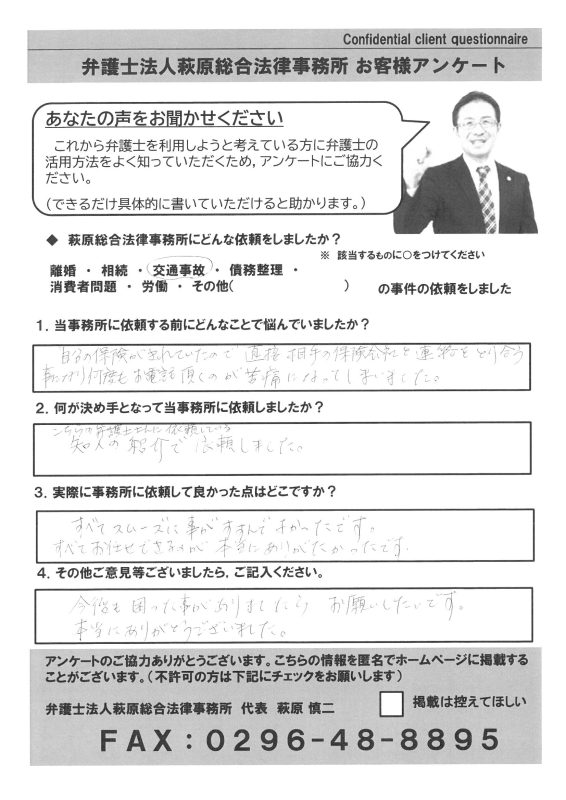 Confidential client questionnaire
弁護士法人萩原総合法律事務所 お客様アンケート
あなたの声をお聞かせください
これから弁護士を利用しようと考えている方に弁護士の
活用方法をよく知っていただくため，アンケートにご協力く
ださい。
（できるだけ具体的に書いていただけると助かります。）
◆ 萩原総合法律事務所にどんな依頼をしましたか？
※ 該当するものに○をつけてください
離婚 ・ 相続 ・ 交通事故 ・ 債務整理 ・
消費者問題 ・ 労働 ・ その他( ) の事件の依頼をしました
1．当事務所に依頼する前にどんなことで悩んでいましたか？
自分の保険が切れていたので 直接 相手の保険会社と連絡をとり合う
事になり何度もお電話頂くのが苦痛になってしまいました。
2．何が決め手となって当事務所に依頼しましたか？
こちらの弁護士さんに依頼している
知人の紹介で依頼しました。
3．実際に事務所に依頼して良かった点はどこですか？
すべてスムーズに事がすすんでよかったです。
すべてお任せできるのが本当にありがたかったです。
4．その他ご意見等ございましたら，ご記入ください。
今後も困った事がありましたら お願いしたいです。
本当にありがとうございました。
アンケートのご協力ありがとうございます。こちらの情報を匿名でホームページに掲載する
ことがございます。（不許可の方は下記にチェックをお願いします）
弁護士法人萩原総合法律事務所 代表 萩原 慎二
掲載は控えてほしい
FAX：0296-48-8895